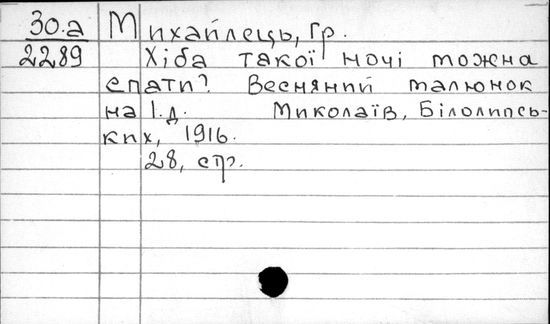 30.а Михайлець, Гр.
2289 Хіба такої ночі можна
спати? Весняний малюнок
на 1.д. Миколаїв, Білолипсь-
ких, 1916.
28, стр.